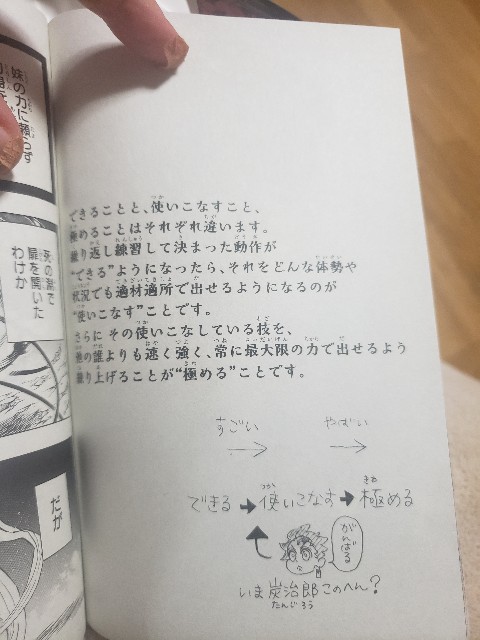 できることと、使いこなすこと、
極めることはそれぞれ違います。
繰り返し練習して決まった動作が
“できる”ようになったら、それをどんな体勢や
状況でも適材適所で出せるようになるのが
“使いこなす”ことです。
さらに その使いこなしている技を、
他の誰よりも速く強く、常に最大限の力で出せるよう
繰り上げることが“極める”ことです。
すごい
やばい
できる→使いこなす→極める
がんばる
いま炭治郎このへん?
妹の力に頼らず
死の淵で
扉を開いた
わけか
だが